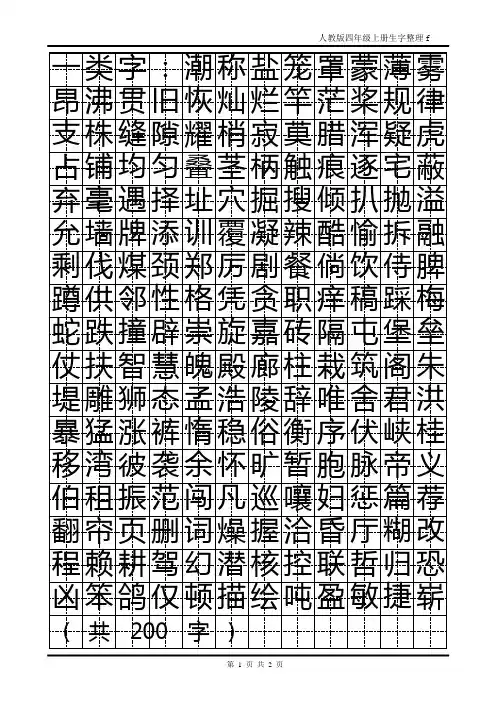 人教版四年级上册生字整理 f
一类字：潮称盐笼罩蒙薄雾
昂沸贯旧恢灿烂竿茫桨规律
支株缝隙耀梢寂莫腊浑疑虎
占铺均匀叠茎柄触痕逐宅蔽
弃毫遇择址穴掘搜倾扒抛溢
允墙牌添训覆凝辣酷愉拆融
剩伐煤颈郑厉剧餐倘饮侍脾
蹲供邻性格凭贪职痒稿踩梅
蛇跌撞辟崇旋嘉砖隔屯堡垒
仗扶智慧魄殿廊柱栽筑阁朱
堤雕狮态孟浩陵辞唯舍君洪
暴猛涨裤惰稳俗衡序伏峡桂
移湾彼袭余怀旷暂胞脉帝义
伯租振范闯凡巡嚷妇惩篇荐
翻帘页删词燥握洽昏厅糊改
程赖耕驾幻潜核控联哲归恐
凶笨鸽仅顿描绘吨盈敏捷崭
（共 200 字）
第 1 页 共 2 页